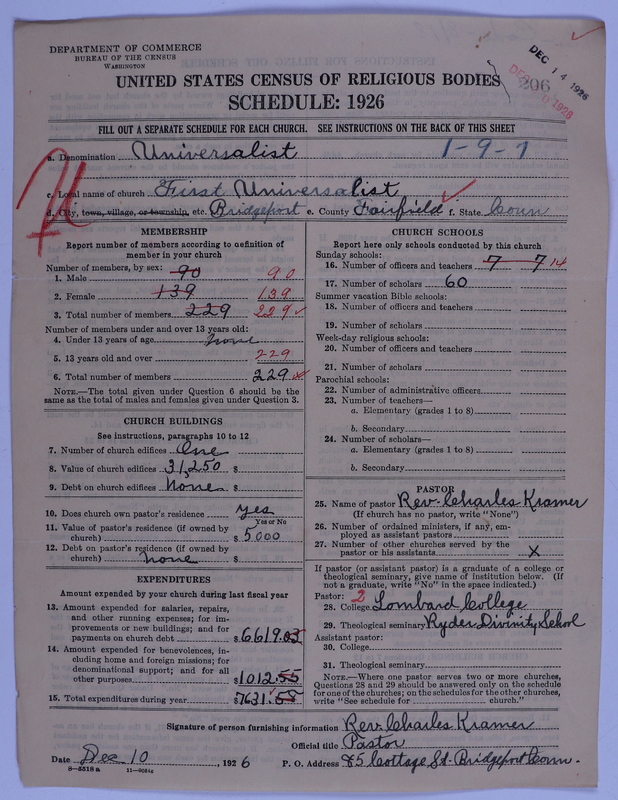 DEPARTMENT OF COMMERCE
BUREAU OF THE CENSUS
WASHINGTON
DEC 14 1926
206
UNITED STATES CENSUS OF RELIGIOUS BODIES
SCHEDULE: 1926
FILL OUT A SEPARATE SCHEDULE FOR EACH CHURCH. SEE INSTRUCTIONS ON THE BACK OF THIS SHEET
a. Denomination Universalist 1-9-7
c. Local name of church First Universalist
d. City, town, village, or township, etc. Bridgeport e. County Fairfield f. State Conn
MEMBERSHIP
Report number of members according to definition of
member in your church
Number of members, by sex:
1. Male 90 90
2. Female 139 139
3. Total number of members 229 229
Number of members under and over 13 years old:
4. Under 13 years of age none
5. 13 years old and over 229
6. Total number of members 229
NOTE.—The total given under Question 6 should be
same as the total of males and females given under Question 3.
CHURCH BUILDINGS
See instructions, paragraphs 10 to 12
7. Number of church edifices One
8. Value of church edifices 31,250 $
9. Debt on church edifices None $
10. Does church own pastor's residence yes
Yes or No
11. Value of pastor's residence (if owned by
church) $ 5000
12. Debt on pastor's residence (if owned by
church) none $
EXPENDITURES
Amount expended by your church during last fiscal year
13. Amount expended for salaries, repairs,
and other running expenses; for im-
provements or new buildings; and for
payments on church debt $ 6619.03
14. Amount expended for benevolences, in-
cluding home and foreign missions; for
denominational support; and for all
other purposes $ 1012.55
15. Total expenditures during year $ 7631.58
CHURCH SCHOOLS
Report here only schools conducted by this church
Sunday schools:
16. Number of officers and teachers 7 7 14
17. Number of scholars 60
Summer vacation Bible schools:
18. Number of officers and teachers
19. Number of scholars
Week-day religious schools:
20. Number of officers and teachers
21. Number of scholars
Parochial schools:
22. Number of administrative officers
23. Number of teachers—
a. Elementary (grades 1 to 8)
b. Secondary
24. Number of scholars—
a. Elementary (grades 1 to 8)
b. Secondary
PASTOR
25. Name of pastor Rev. Charles Kramer
(If church has no pastor, write "None")
26. Number of ordained ministers, if any, em-
ployed as assistant pastors
27. Number of other churches served by the
pastor or his assistants X
If pastor (or assistant pastor) is a graduate of a college or
theological seminary, give name of institution below. (If
not a graduate, write "No" in the space indicated.)
Pastor: 2
28. College Lombard College
29. Theological seminary Ryder Divinity School
Assistant pastor:
30. College
31. Theological seminary
NOTE.—Where one pastor serves two or more churches,
Questions 28 and 29 should be answered only on the schedule
for one of the churches; on the schedules for the other churches,
write "See schedule for church."
Signature of person furnishing information Rev. Charles Kramer
Official title Pastor
Date Dec 10, 1926 P. O. Address 85 Cottage St. Bridgeport Conn.
8—5518a 11—9094c